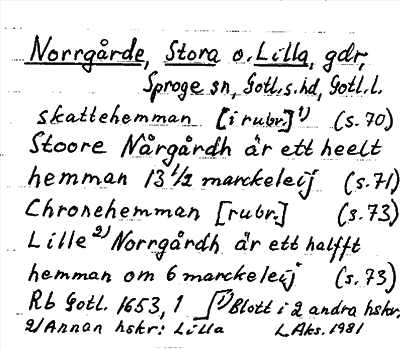 Norrgårde, Stora o. Lilla, gdr,
Sproge sn, Gotl. s. hd, Gotl. l.
skattehemman [i rubr.] 1) (s. 70)
Stoore Nårgårdh är ett heelt
hemman 13 1/2 marckeleij (s. 71)
Chronehemman [rubr.] (s. 73)
Lille 2) Norrgårdh är ett halfft
hemman om 6 marckeleij (s. 73)
Rb Gotl. 1653, 1 1) Blott i 2 andra hskr.
2) Annan hskr: Lilla L Aks. 1981